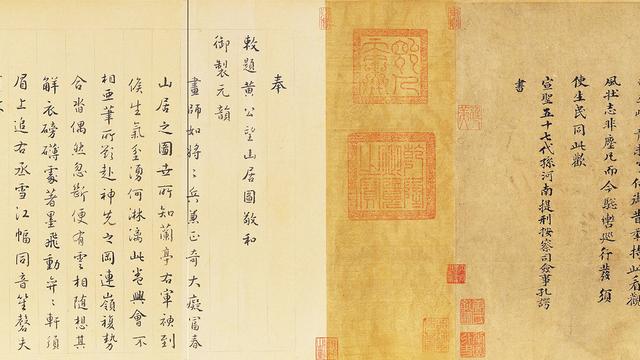 風壯志非塵凡而今驄轡巡行發須
使生民同此歡
宣聖五十七代孫河南提刑按察司僉事孔諤
書
奉
敕題黃公望山居圖敬和
御製元韻
畫師如將〻兵兼正奇大癡富春
山居之圖世所知蘭亭右軍神到
候生氣坌湧何淋漓此卷興會不
相亞筆所欲赴神先之岡連嶺複勢
合沓偶然忽斷便有雲相隨想其
解衣磅礴處著墨飛動弈〻軒須
眉上追右丞雪江幅同音笙磬夫